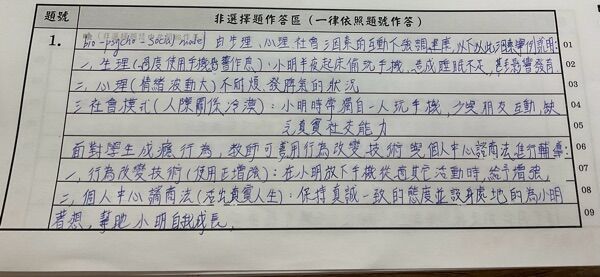 題號 非選擇題作答區（一律依照題號作答）
1. bio-psycho-social model 由生理、心理、社會三因素的互動下強調健康，以下以此 實例說明： 01
一、生理(過度使用手機影響作息)：小明半夜起床偷玩手機，造成睡眠不足，甚至影響發育 02
二、心理(情緒波動大)：不耐煩、發脾氣的狀況 03
三、社會模式(人際關係冷漠)：小明時常獨自一人玩手機，少與朋友互動，缺 04
乏真實社交能力 05
面對學生成癮行為，教師可善用行為改變技術與個人中心諮商法進行輔導： 06
一、行為改變技術(使用正增強)：在小明放下手機從事其它活動時，給予增強 07
二、個人中心諮商法(活出真實人生)：保持真誠一致的態度並設身處地的為小明 08
著想，幫助小明自我成長。 09